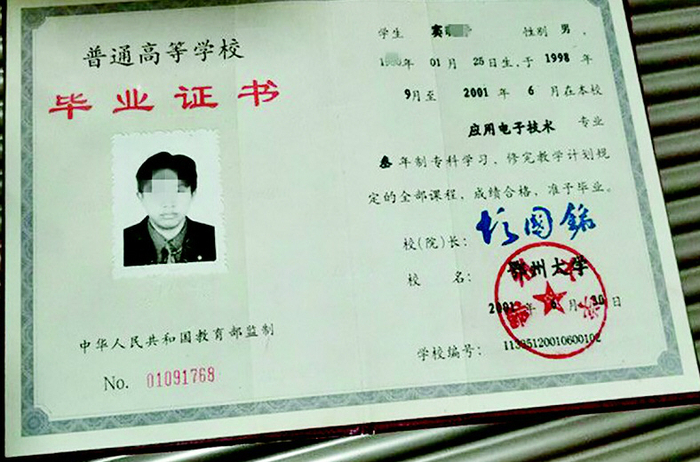 普通高等学校
毕业证书
中华人民共和国教育部监制
No. 01091768
学生 窦 性别 男,
19 年 01 月 25 日生,于 1998 年
9 月至 2001 年 6 月在本校
应用电子技术 专业
叁 年制专科学习、修完教学计划规
定的全部课程,成绩合格,准予毕业。
校(院)长:
校 名: 鄂州大学
2001 年 6 月 30 日
学校编号: 11335120010600102